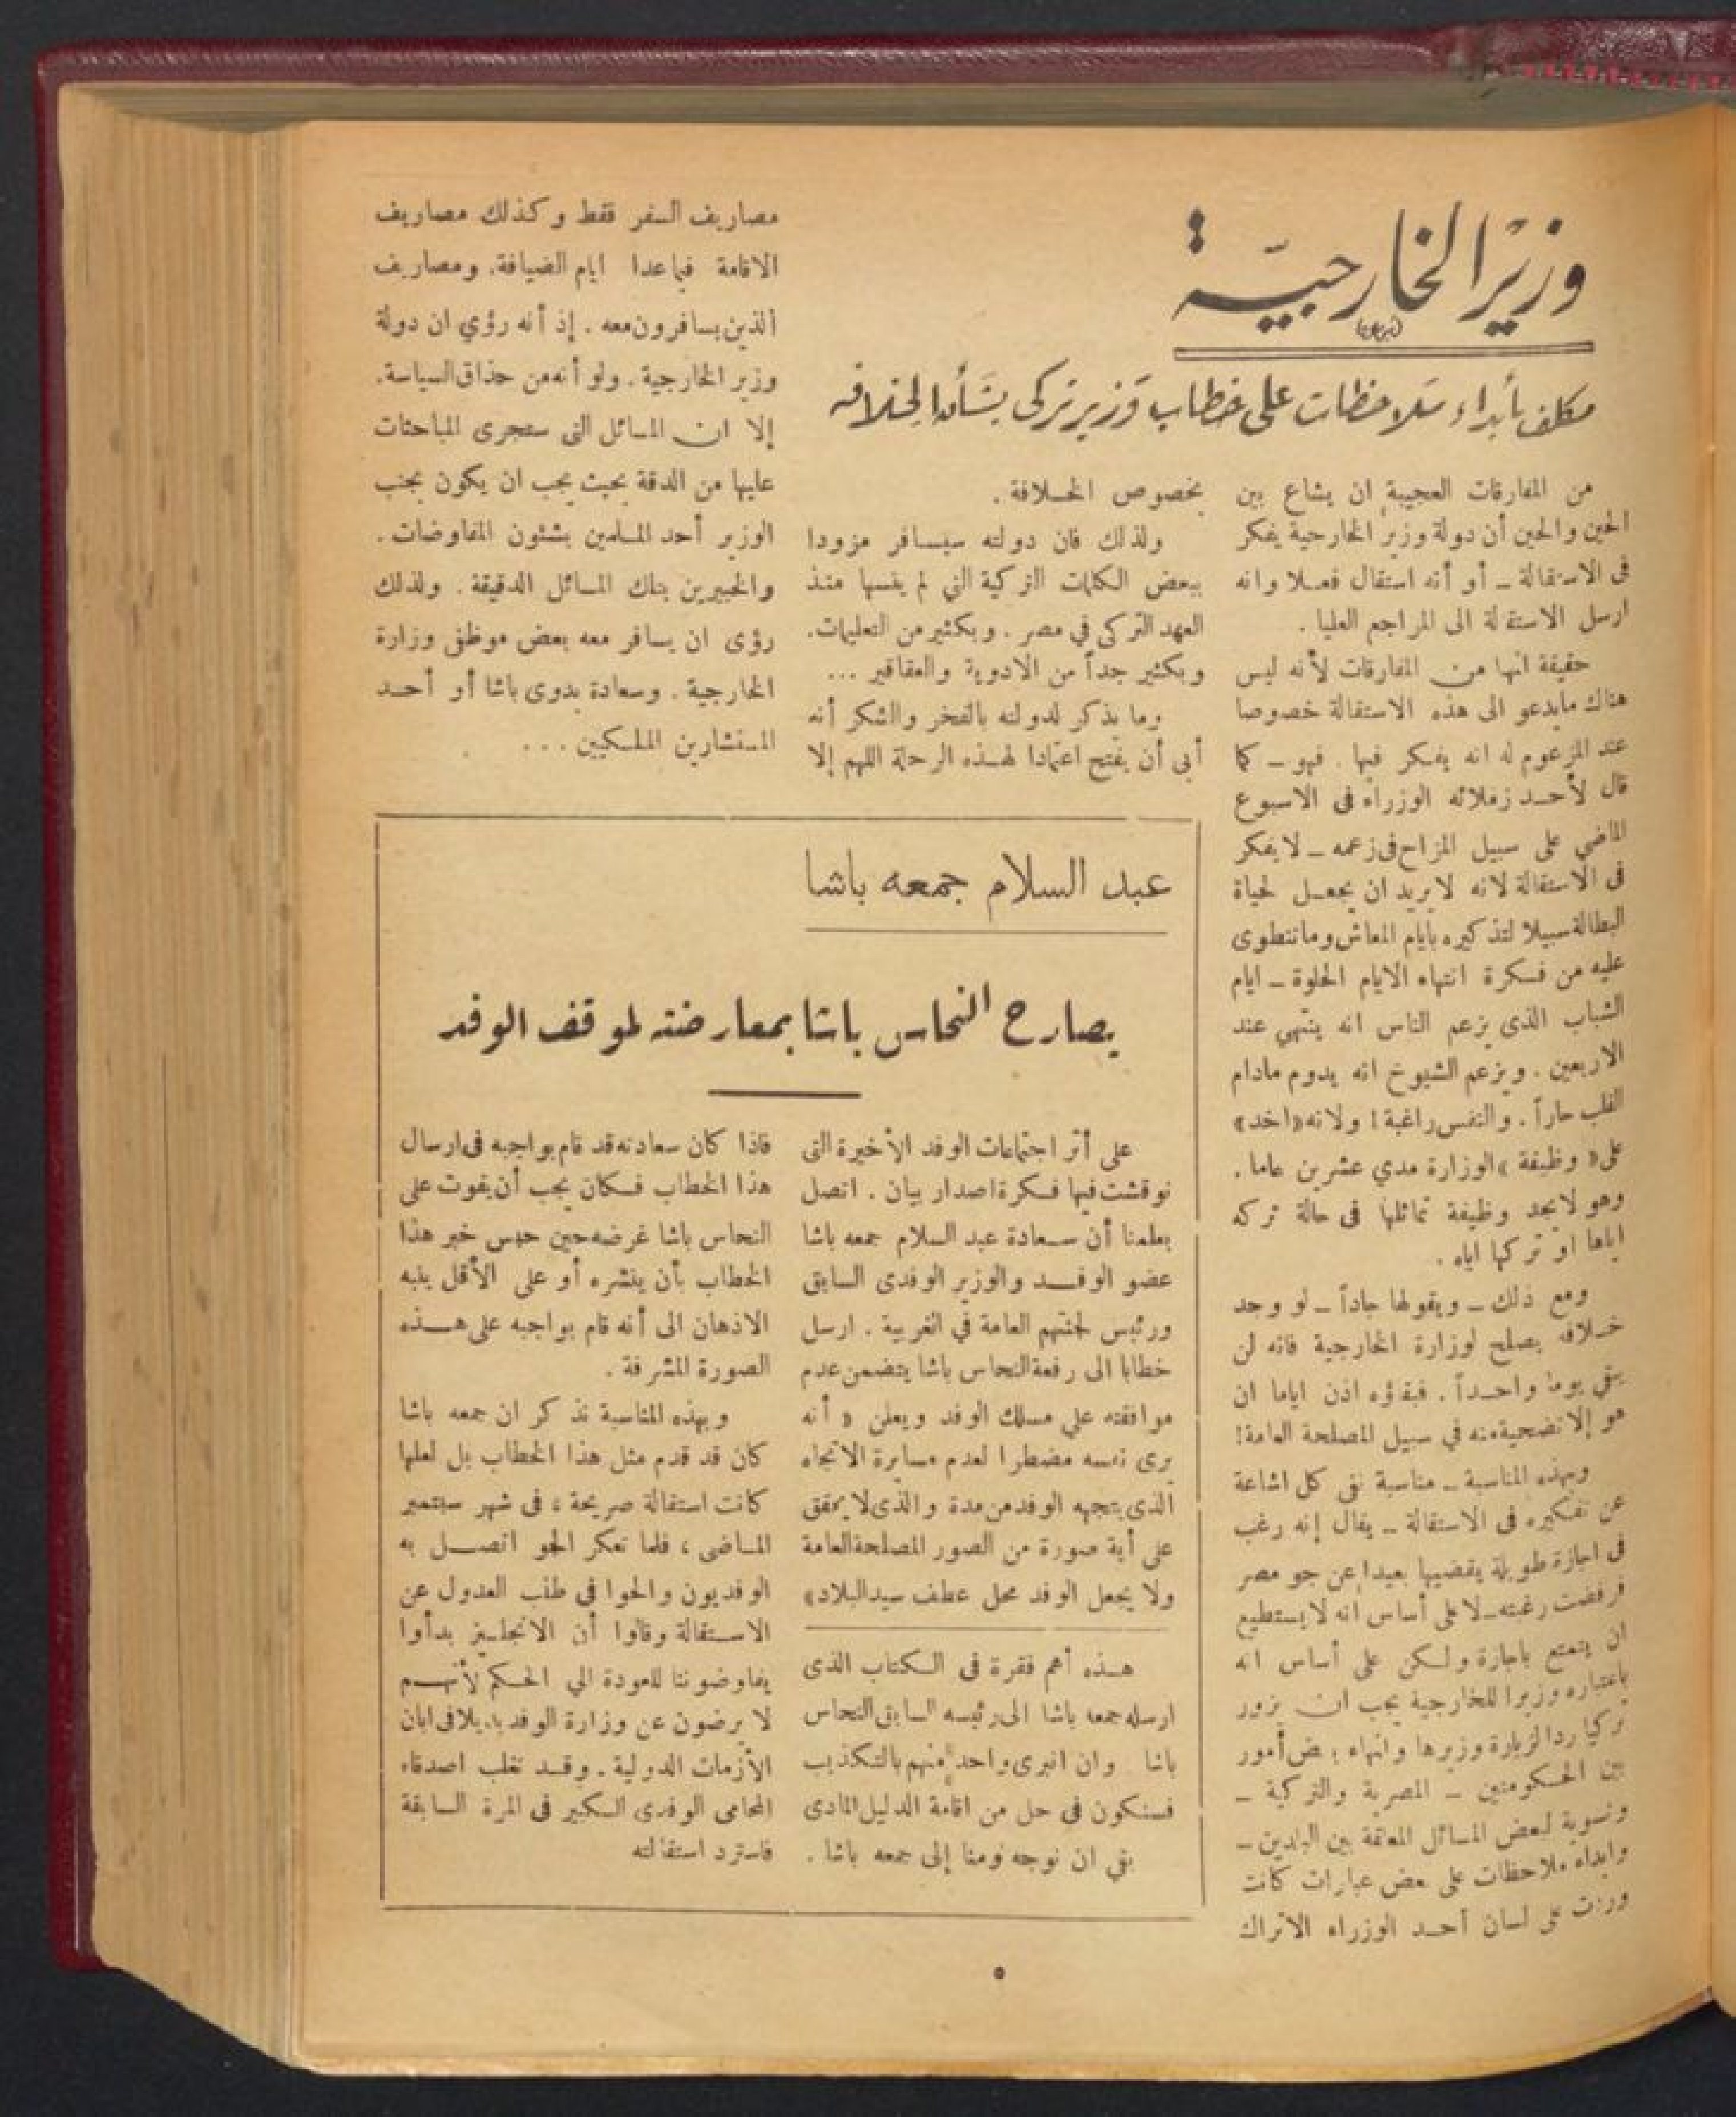 وزير الخارجية
مكلف بأبداء ملاحظات على خطاب وزير تركى بشأن الخلافه
من المفارقات العجيبة ان يشاع بين
الحين والحين أن دولة وزير الخارجية يفكر
فى الاستقالة ـ أو أنه استقال فعلا وانه
ارسل الاستقالة الى المراجع العليا .
حقيقة انها من المفارقات لأنه ليس
هناك مايدعو الى هذه الاستقالة خصوصا
عند المزعوم له انه يفكر فيها . فهو ـ كما
قال لأحد زملائه الوزراء فى الاسبوع
الماضي على سبيل المزاح فى زعمه ـ لا يفكر
فى الاستقالة لانه لا يريد ان يجعل لحياة
البطالة سبيلا لتذكيره بايام المعاش وما تنطوى
عليه من فكرة انتهاء الايام الحلوة ـ ايام
الشباب الذى يزعم الناس انه ينتهى عند
الاربعين . ويزعم الشيوخ انه يدوم مادام
القلب حاراً . والنفس راغبة ! ولانه «اخد»
على « وظيفة » الوزارة مدي عشرين عاما .
وهو لا يجد وظيفة تماثلها فى حالة تركه
اياها او تركها اياه .
ومع ذلك ـ ويقولها جاداً ـ لو وجد
خلافه يصلح لوزارة الخارجية فانه لن
يبقي يوما واحداً . فبقاؤه اذن اياما ان
هو إلا تضحية منه في سبيل المصلحة العامة !
وبهذه المناسبة ـ مناسبة نفى كل اشاعة
عن تفكيره فى الاستقالة ـ يقال إنه رغب
فى اجازة طويلة يقضيها بعيدا عن جو مصر
فرفضت رغبته ـ لا على أساس انه لا يستطيع
ان يتمتع باجازة ولكن على أساس انه
باعتباره وزيرا للخارجية يجب ان يزور
تركيا ردا لزيارة وزيرها وانهاء بعض أمور
بين الحكومتين ـ المصرية والتركية ـ
وتسوية لبعض المسائل المعلقة بين البلدين ـ
وابداء ملاحظات على بعض عبارات كانت
وردت على لسان أحد الوزراء الاتراك
بخصوص الخلافة .
ولذلك فان دولته سيسافر مزودا
ببعض الكلمات التركية التي لم ينسها منذ
العهد التركى في مصر . وبكثير من التعليمات.
وبكثير جداً من الادوية والعقاقير ...
وما يذكر لدولته بالفخر والشكر أنه
أبى أن يفتح اعتمادا لهذه الرحلة اللهم إلا
مصاريف السفر فقط وكذلك مصاريف
الاقامة فيما عدا ايام الضيافة. ومصاريف
الذين يسافرون معه . إذ أنه رؤي ان دولة
وزير الخارجية . ولو أنه من حذاق السياسة.
إلا ان المسائل التى ستجرى المباحثات
عليها من الدقة بحيث يجب ان يكون بجنب
الوزير أحد الملمين بشئون المفاوضات .
والخبيرين بتلك المسائل الدقيقة . ولذلك
رؤى ان يسافر معه بعض موظفى وزارة
الخارجية . وسعادة بدوى باشا أو أحد
المستشارين الملكيين ...
عبد السلام جمعه باشا
يصارح النحاس باشا بمعارضته لموقف الوفد
على أثر اجتماعات الوفد الأخيرة التى
نوقشت فيها فكرة اصدار بيان . اتصل
بعلمنا أن سعادة عبد السلام جمعه باشا
عضو الوفد والوزير الوفدى السابق
ورئيس لجنتهم العامة في الغربية . ارسل
خطابا الى رفعة النحاس باشا يتضمن عدم
موافقته علي مسلك الوفد ويعلن « أنه
يرى نفسه مضطرا لعدم مسايرة الاتجاه
الذى يتجهه الوفد من مدة والذى لا يحقق
على أية صورة من الصور المصلحة العامة
ولا يجعل الوفد محل عطف سيد البلاد»
هذه أهم فقرة فى الكتاب الذى
ارسله جمعه باشا الى رئيسه السابق النحاس
باشا وان انبرى واحد منهم بالتكذيب
فسنكون فى حل من اقامة الدليل المادى
بقي ان نوجه لومنا إلى جمعه باشا .
فاذا كان سعادته قد قام بواجبه فى ارسال
هذا الخطاب فكان يجب أن يفوت على
النحاس باشا غرضه حين حبس خبر هذا
الخطاب بأن ينشره أو على الأقل ينبه
الاذهان الى أنه قام بواجبه على هذه
الصورة المشرفة .
وبهذه المناسبة نذكر ان جمعه باشا
كان قد قدم مثل هذا الخطاب بل لعلها
كانت استقالة صريحة ، فى شهر سبتمبر
الماضى ، فلما تعكر الجو اتصل به
الوفديون والحوا فى طلب العدول عن
الاستقالة وقالوا أن الانجليز بدأوا
يفاوضوننا للعودة الي الحكم لأنهم
لا يرضون عن وزارة الوفد بديلا فى ابان
الأزمات الدولية . وقد تغلب اصدقاء
المحامى الوفدى الكبير فى المرة السابقة
فاسترد استقالته
٥